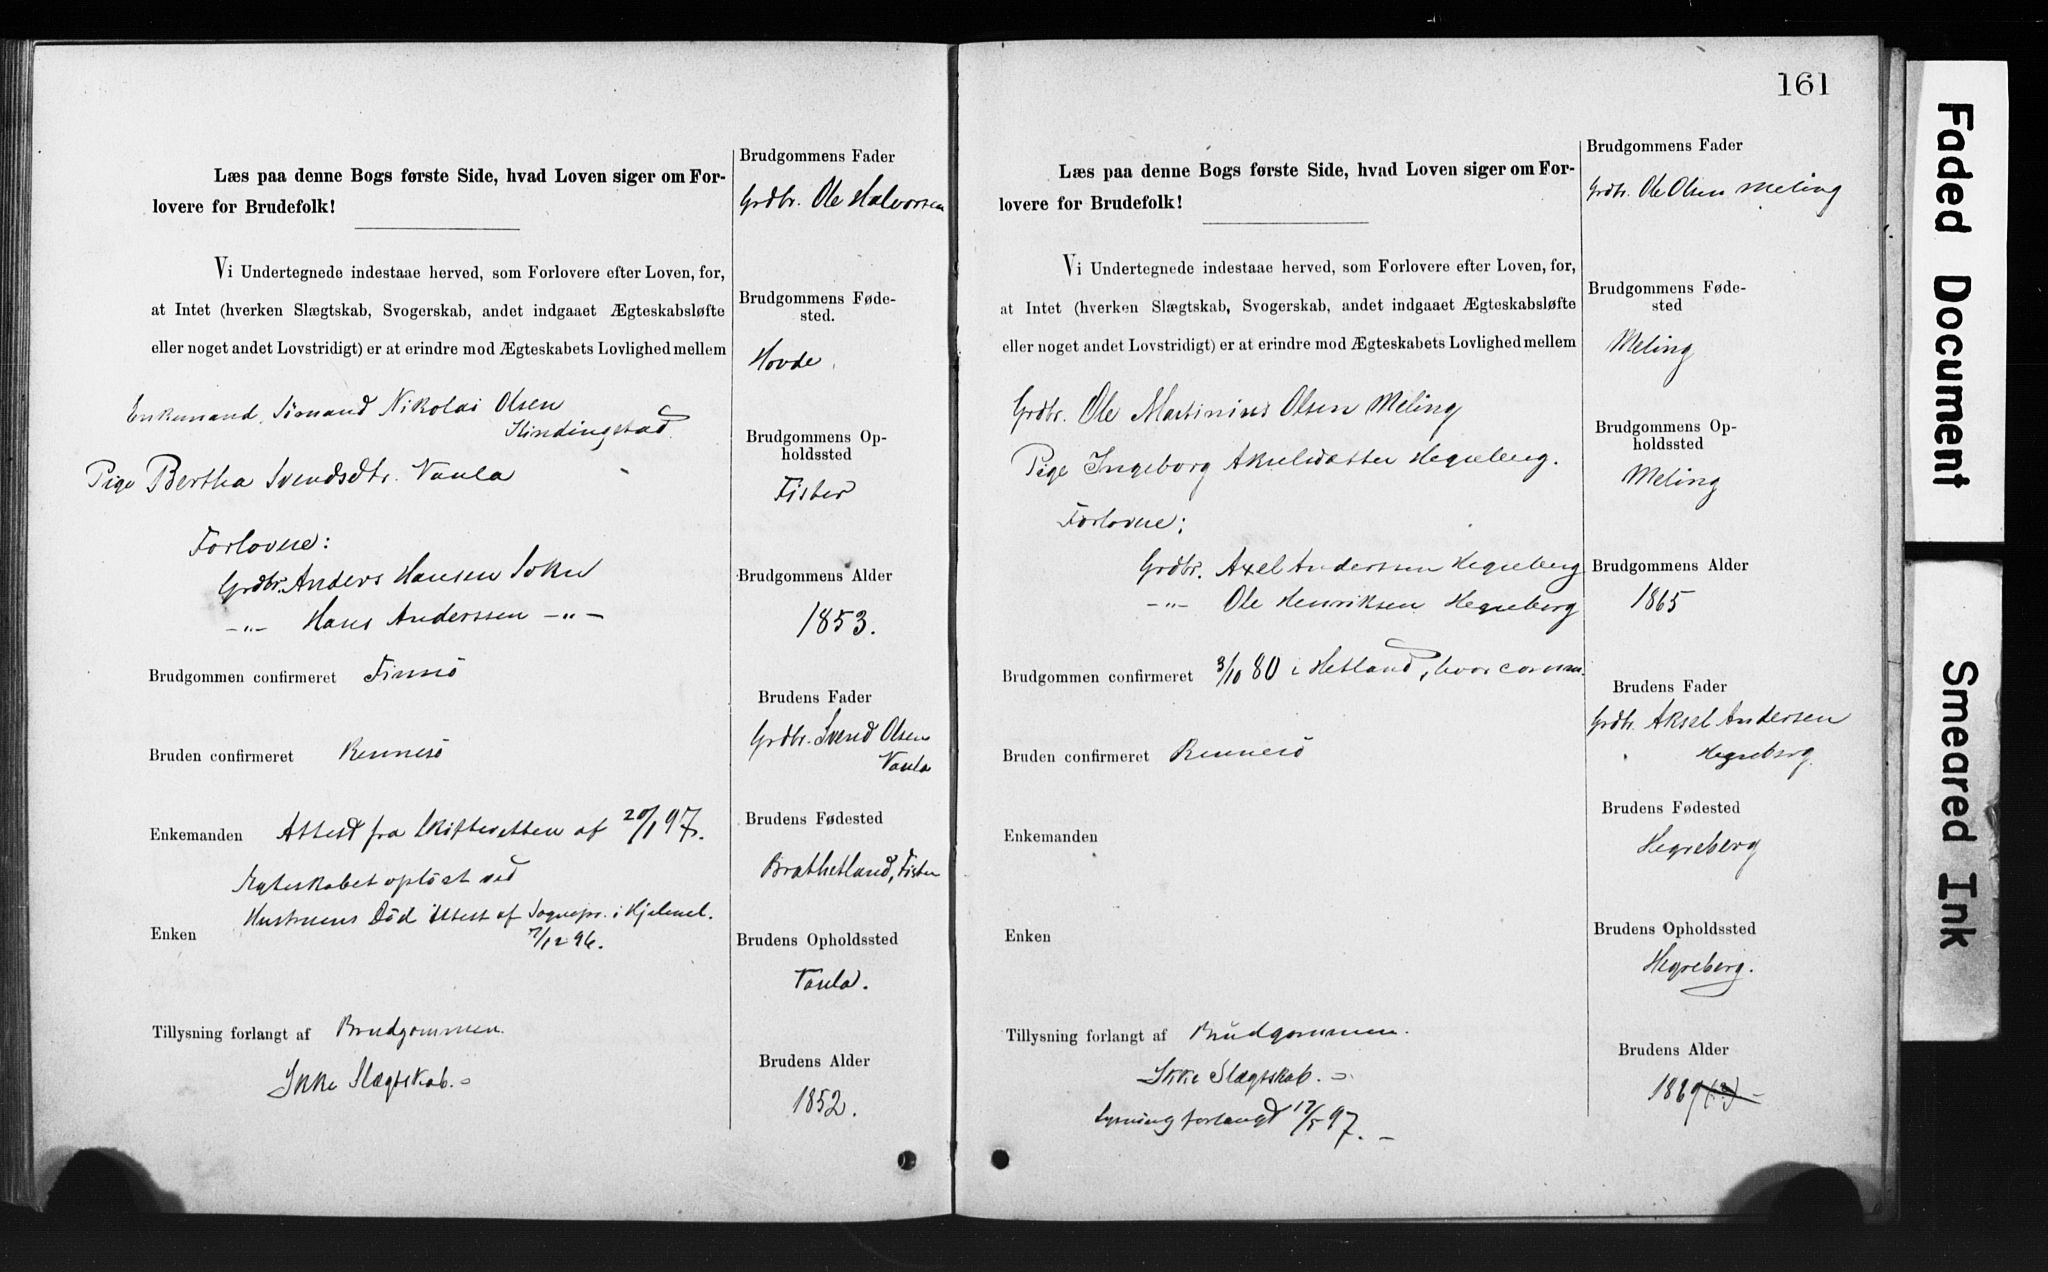 Læs paa denne Bogs første Side, hvad Loven siger om For-
lovere for Brudefolk!
Vi Undertegnede indestaae herved, som Forlovere efter Loven, for,
at Intet (hverken Slægtskab, Svogerskab, andet indgaaet Ægteskabsløfte
eller noget andet Lovstridigt) er at erindre mod Ægteskabets Lovlighed mellem
Enkemand, Sømand Nikolai Olsen
Kindingstad.
Pige Bertha Svendsdtr. Vaula
Forlovere:
Grdbr. Anders Hansen Sokn
-„- Hans Anderssen -„-
Brudgommen confirmeret Finnø
Bruden confirmeret Rennesø
Enkemanden Attest fra Skifteretten af 20/1 97.
Egteskabet opløst ved
Hustruens Død Attest af Sognepr. i Hjelmel.
Enken 7/12 96.
Tillysning forlangt af Brudgommen.
Ikke Slægtskab.
Brudgommens Fader
Grdbr. Ole Halvorsen
Brudgommens Føde-
sted.
Hovde.
Brudgommens Op-
holdssted
Fister
Brudgommens Alder
1853.
Brudens Fader
Grdbr. Svend Olsen
Vaula
Brudens Fødested
Brathetland, Fister
Brudens Opholdssted
Vaula.
Brudens Alder
1852.
161
Læs paa denne Bogs første Side, hvad Loven siger om For-
lovere for Brudefolk!
Vi Undertegnede indestaae herved, som Forlovere efter Loven, for,
at Intet (hverken Slægtskab, Svogerskab, andet indgaaet Ægteskabsløfte
eller noget andet Lovstridigt) er at erindre mod Ægteskabets Lovlighed mellem
Grdbr. Ole Martinius Olsen Meling
Pige Ingeborg Akselsdatter Hegreberg.
Forlovere:
Grdbr. Axel Anderssen Hegreberg
-„- Ole Henriksen Hegreberg
Brudgommen confirmeret 3/10 80 i Hetland, hvor
Bruden confirmeret Rennesø
Enkemanden
Enken
Tillysning forlangt af Brudgommen.
Ikke Slægtskab.
Lysning forlangt 17/5 97.
Brudgommens Fader
Grdbr. Ole Olsen Meling
Brudgommens Føde-
sted
Meling
Brudgommens Op-
holdssted
Meling
Brudgommens Alder
1865
Brudens Fader
Grdbr. Aksel Andersen
Hegreberg.
Brudens Fødested
Hegreberg
Brudens Opholdssted
Hegreberg.
Brudens Alder
1869 (?)
Faded Document
Smeared Ink